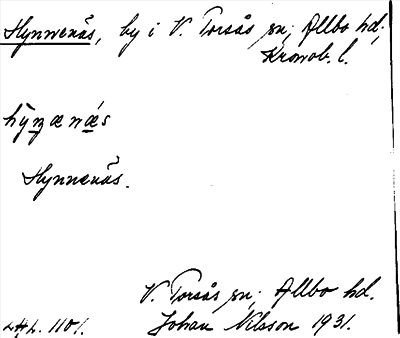 Hynnenäs, by i V. Torsås sn; Allbo hd;
Kronob. l.
hỳn̠ænǽ̠s
Hynnenäs.
V. Torsås sn; Allbo hd.
Johan Nilsson 1931.
1101.